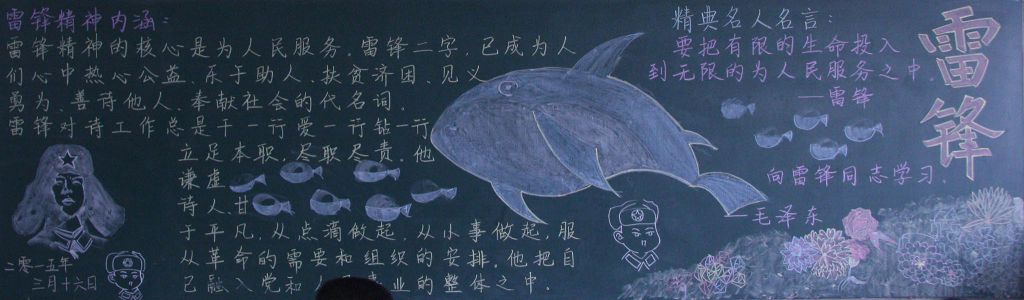 雷锋精神内涵：
雷锋精神的核心是为人民服务，雷锋二字，已成为人
们心中热心公益、乐于助人、扶贫济困、见义
勇为、善待他人、奉献社会的代名词．
雷锋对待工作总是干一行爱一行钻一行
立足本职，尽职尽责，他
谦虚
待人，甘
于平凡，从点滴做起，从小事做起，服
从革命的需要和组织的安排，他把自
己融入党和人 业的整体之中．
二零一五年
三月十六日
精典名人名言：
要把有限的生命投入
到无限的为人民服务之中．
——雷锋
向雷锋同志学习．
—毛泽东
雷锋